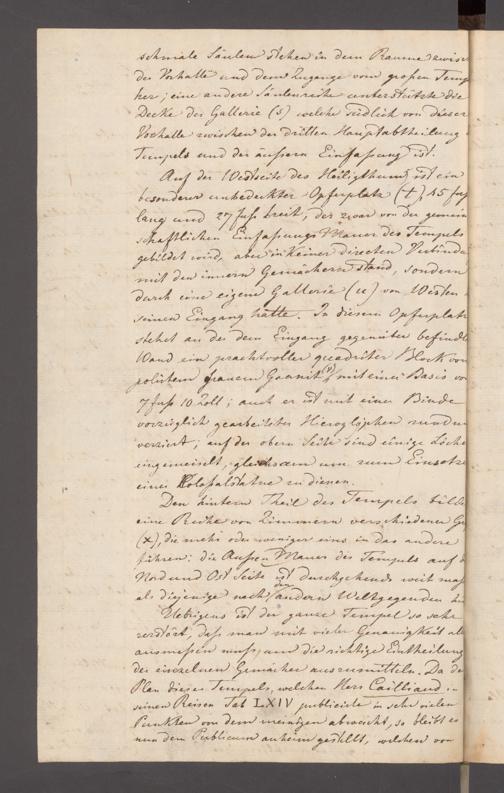 schmale Säulen stehen in dem Raume zwisc
der Vorhalle und dem Zugange vom großen Temp
her; eine andere Säulenreihe unterstützte die
Decke der Gallerie (s) welche südlich von dieser
Vorhalle zwischen der dritten Hauptabtheilung d
Tempels und der äussern Einfaßung ist.
Auf der Westseite des Heiligthums ist ein
besonderer unbedeckter Opferplatz (t) 45 fuß
lang und 27 fuß breit, der zwar von der gemein
schaftlichen Einfaßungs Mauer des Tempels
gebildet wird, aber in keiner directen Verbindu
mit den innern Gemächern stand, sondern
durch eine eigene Gallerie (u) von Westen
seinen Eingang hatte. In diesem Opferplatz
stehet an der dem Eingang gegenüber befindl
Wand ein prachtvoller quadrirter Block von
polirtem grauem Grannit mit einer Basis vo
7 fuß 10 Zoll; auch er ist mit einer Binde
vorzüglich gearbeiteter Hieroglyphen rundum
verziert; auf der obern Seite sind einige Löche
eingemeiselt, gleichsam um zum Einsatze
einer Koloßalstatue zu dienen.
Den hintern Theil des Tempels bilde
eine Reihe von Zimmern verschiedener Gr
(x), die mehr oder weniger eins in das andere
führen: die Aussen Mauer des Tempels auf d
Nord und Ost Seite ist durchgehends weit maß
als diejenige nach den andern Weltgegenden hin
Uebrigens ist der ganze Tempel so sehr
zerstört, daß man mit vieler Genauigkeit all
ausmeßen muß, um die richtige Eintheilung
der einzelnen Gemächer auszumitteln. Da de
Plan dieses Tempels, welchen Herr Cailliaud in
seinen Reisen Tab LXIV publicirte in sehr vielen
Punkten von dem meinigen abweicht, so bleibt es
nun dem Publicum anheim gestellt, welchen von